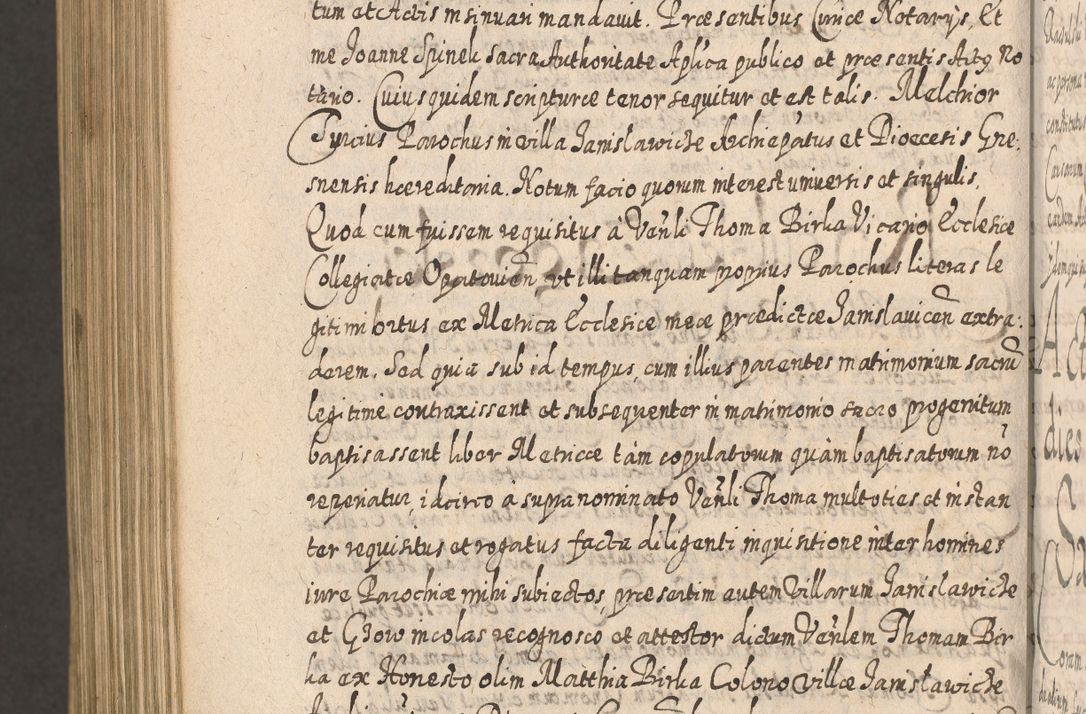 tum et Actis insinuari mandavit. Præsentibus Curiæ Notarijs, Et
me Joanne Spinek sacra Authoritate Aplica publico et præsentis Actus No
tario. Cuius quidem scripturæ tenor sequitur et est talis. Melchior
Turcius Parochus in villa Janislawicze Archiepatus et Dioecesis Gne:
snensis hæreditaria. Notum facio quorum interest universis et singulis,
Quod cum fuissem requisitus à Venli Thoma Birka Vicario Ecclesiæ
Collegiatæ Opatovien ut illi tanquam proprius Parochus literas le
gitimi ortus ex Metrica Ecclesiæ meæ prædictæ Janislauicen extra:
derem. Sed quia sub id tempus, cum illius parentes matrimonium sacru
legitime contraxissent et subsequenter in matrimonio sacro progenitum
baptisassent liber Metricæ tàm copulatorum quàm baptisatorum nō
reperiatur, idcirco à supranominato Venli Thoma multoties et instan
ter requisitus et rogatus facta diligenti inquisitione inter homines
iure Parochiæ mihi subiectos, præsertim autem villarum Janislawicze
et Głow incolas recognosco et attestor dictum Venlem Thomam Bir
ka ex Honesto olim Matthia Birka Colono villæ Janislawicze